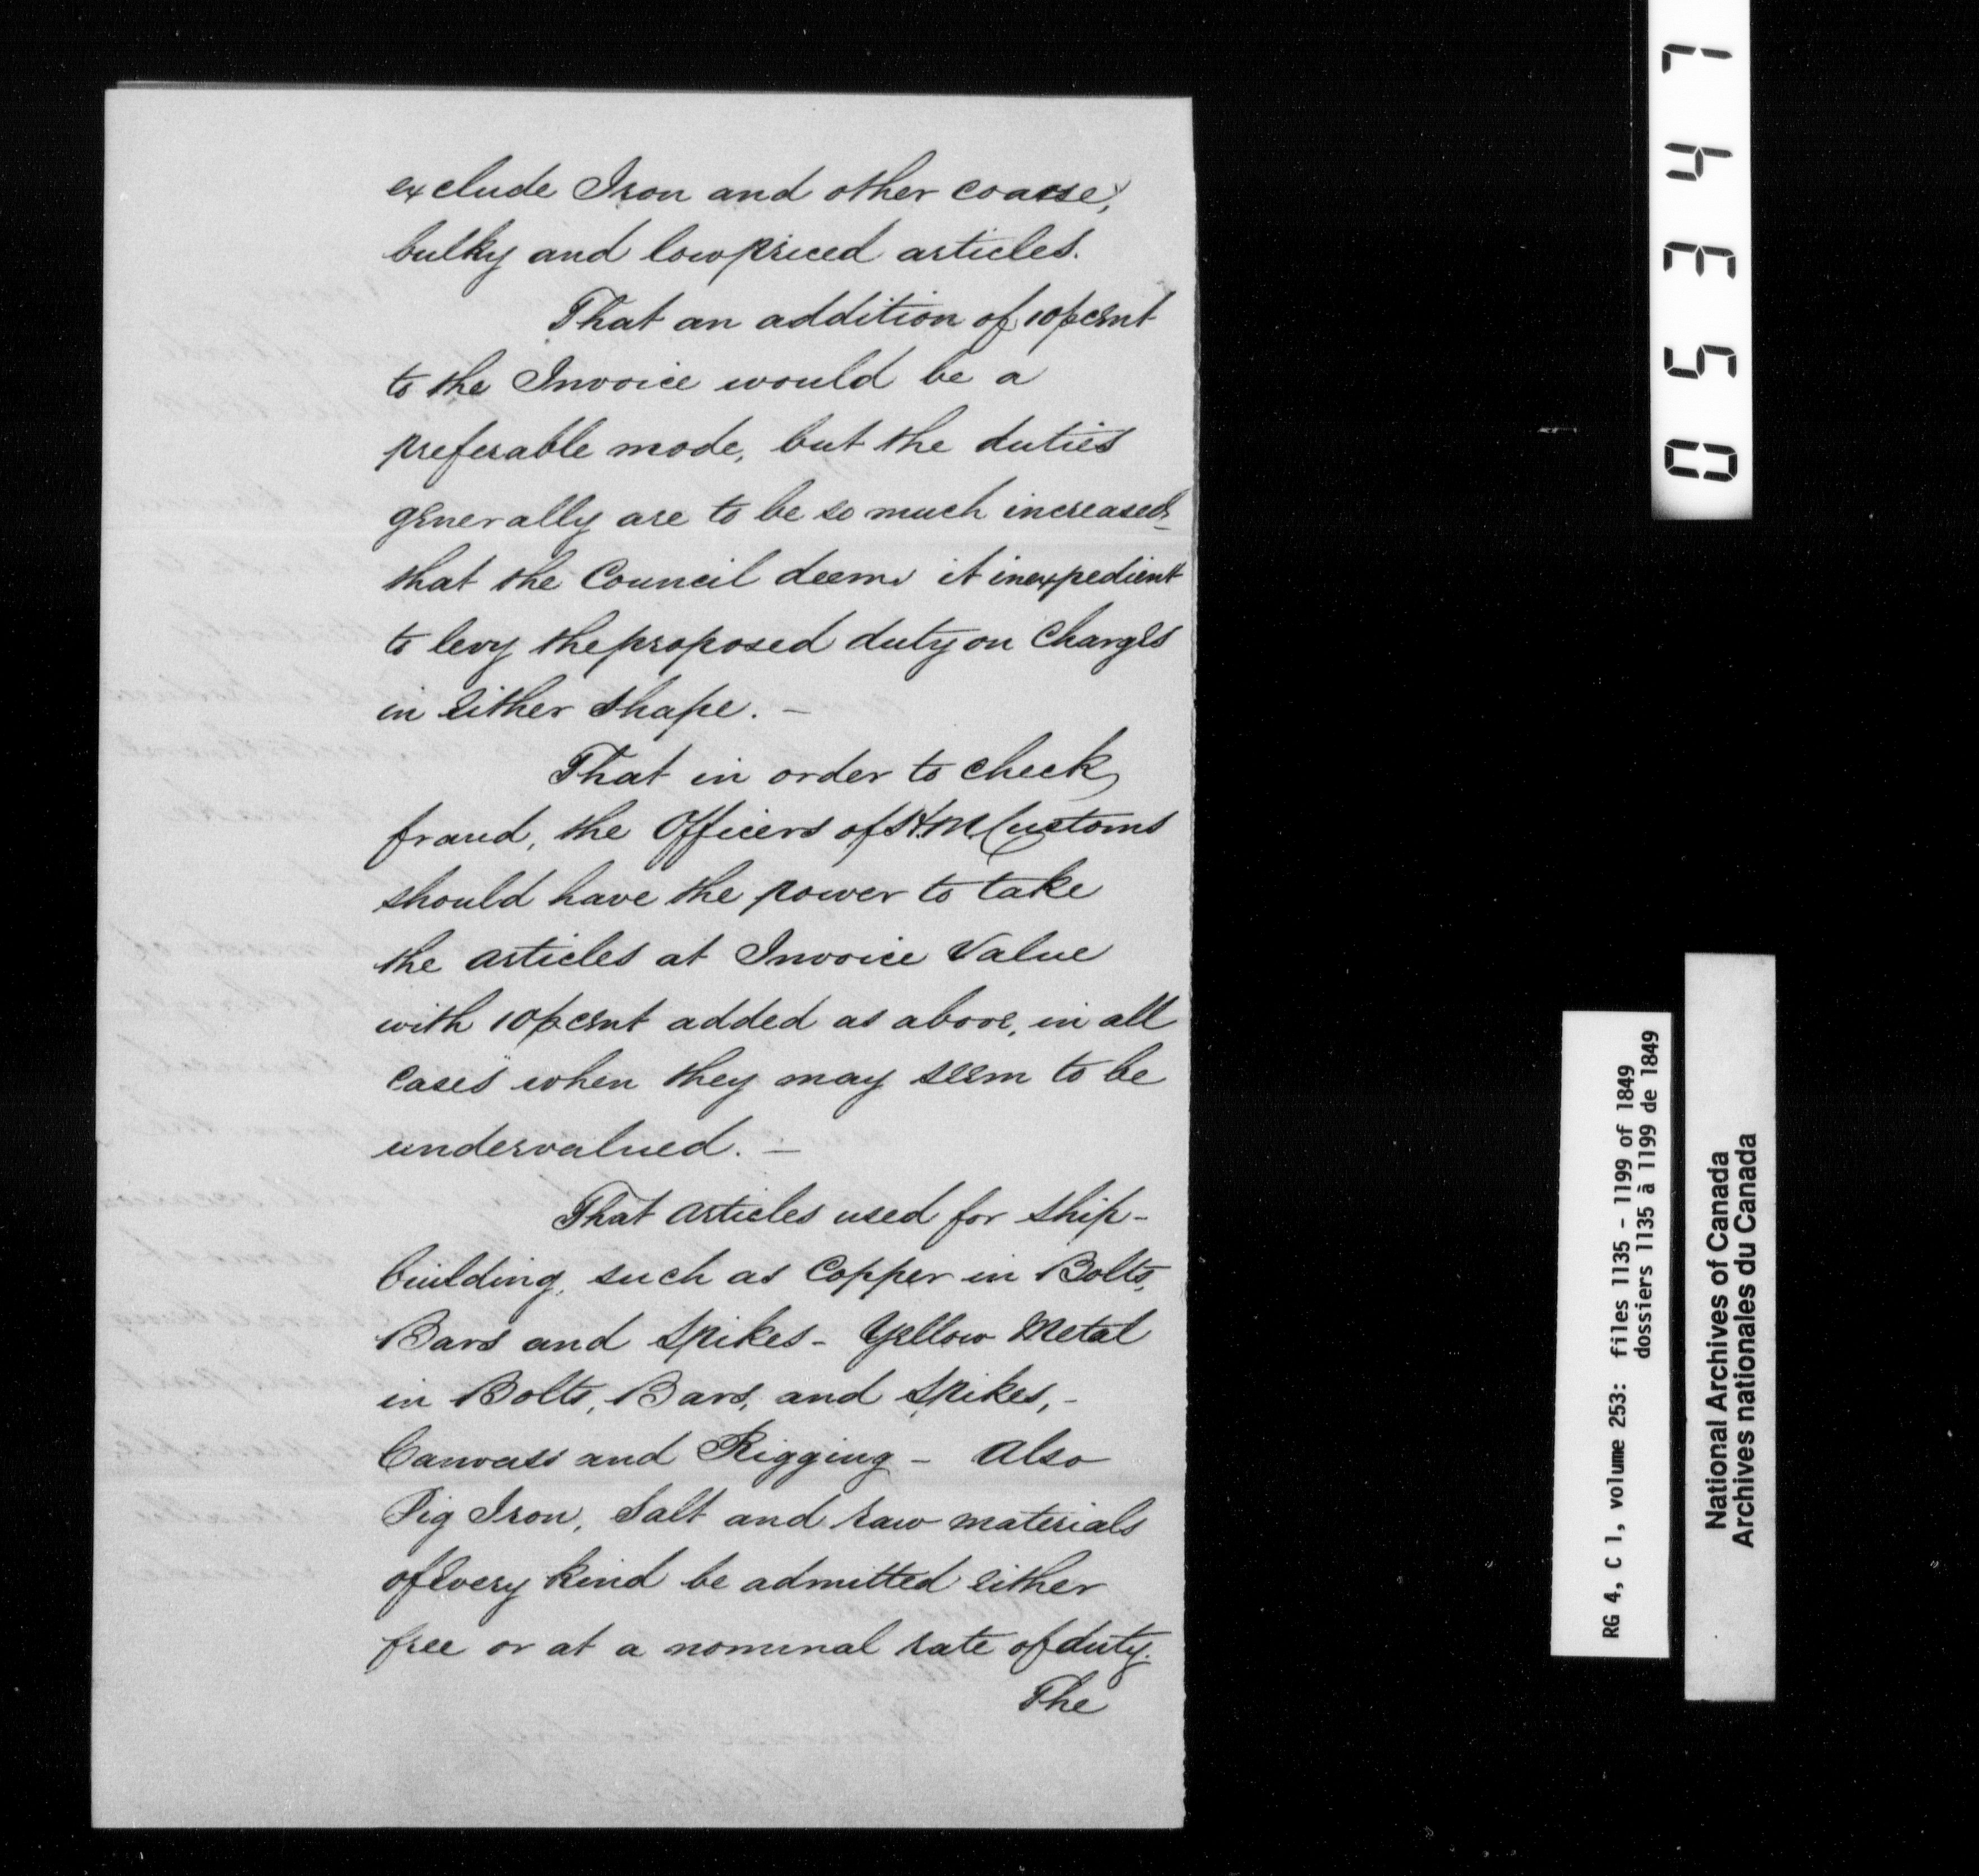 exclude Iron and other coarse,
bulky and lowpriced articles.
That an addition of 10 p cent
to the Invoice would be a
preferable mode, but the duties
generally are to be so much increased
that the Council deems it inexpedient
to levy the proposed duty on Charges
in either shape. –
That in order to check
fraud, the Officers of H. M. Customs
should have the power to take
the articles at Invoice Value
with 10 p cent added as above, in all
cases when they may seem to be
undervalued. –
That articles used for ship-
building, such as Copper in Bolts,
Bars and Spikes – Yellow Metal
in Bolts, Bars, and Spikes, –
Canvass and Rigging – Also
Pig Iron, Salt and raw materials
of every kind be admitted either
free or at a nominal rate of duty.
The
05347
RG 4, C 1, volume 253: files 1135 - 1199 of 1849
dossiers 1135 à 1199 de 1849
National Archives of Canada
Archives nationales du Canada